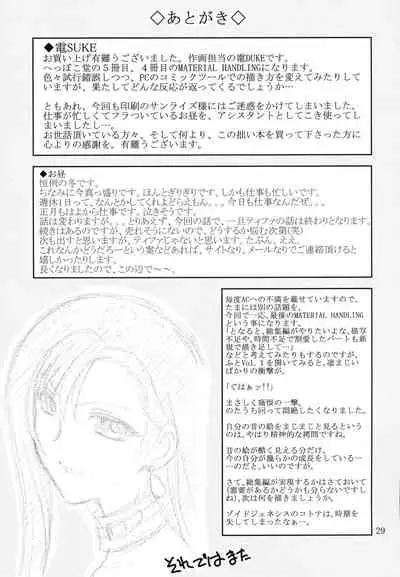 ◇あとがき◇
◆電SUKE
お買い上げ有難うございました。作画担当の電DUKEです。
へっぽこ堂の5冊目、4冊目のMATERIAL HANDLINGになります。
色々試行錯誤しつつ、PCのコミックツールでの描き方を変えてみたりして
いますが、果たしてどんな反応が返ってくるでしょうか…
ともあれ、今回も印刷のサンライズ様にはご迷惑をかけてしまいました。
仕事が忙しくてフラついているお昼を、アシスタントとしてこき使ってし
まいましたし…。
お世話頂いている方々、そして何より、この拙い本を買って下さった方に
心よりの感謝を。有難うございます。
◆お昼
恒例の冬です。
ちなみに今真っ盛りです。ほんとぎりぎりです、しかも仕事も忙しいです。
週休1日って、なんとかしてくれよどらえもん。、今日も仕事なんだぜ。。。
正月もはよから仕事です。泣きそうです。
話は変わりますが、、、今回の話で、一旦ティファの話は終わりとなります。
続きはあるのですが、売れそうにないので、どうするか悩む次第(笑)
次も出すと思いますが、ティファじゃないと思います。たぶん、ええ。
これなんかどうだろーという案などあれば、サイトなり、メールなりでご連絡頂けると
嬉しかったりします。
長くなりましたので、この辺で〜〜。
毎度ACへの不満を載せていますので、
たまには別の話題を。
今回で一応、最後のMATERIAL HANDLING
という事になります。
「となると、総集編がやりたいよな、描写
不足や、時間不足で割愛したパートも新
規で描き足して…」
などと考えてみたりもするのですが、
ふとVol.1を開いてみると、凄まじい
ばかりの衝撃が。
「ぐはぁッ!!」
まさしく痛恨の一撃。
のたうち回って悶絶したくなりました。
自分の昔の絵をまじまじと見るという
のは、やはり精神的な拷問ですね。
昔の絵が酷く見える分だけ、
今の自分が幾らかの成長をしている…
…のだと、いいのですが。
さて、総集編が実現するかはさておいて
(需要があるかどうかも分らないですし
ね)、次は何を描きましょうか。
ゾイドジェネシスのコトナは、時期を
失してしまったなぁー。
それではまた
29